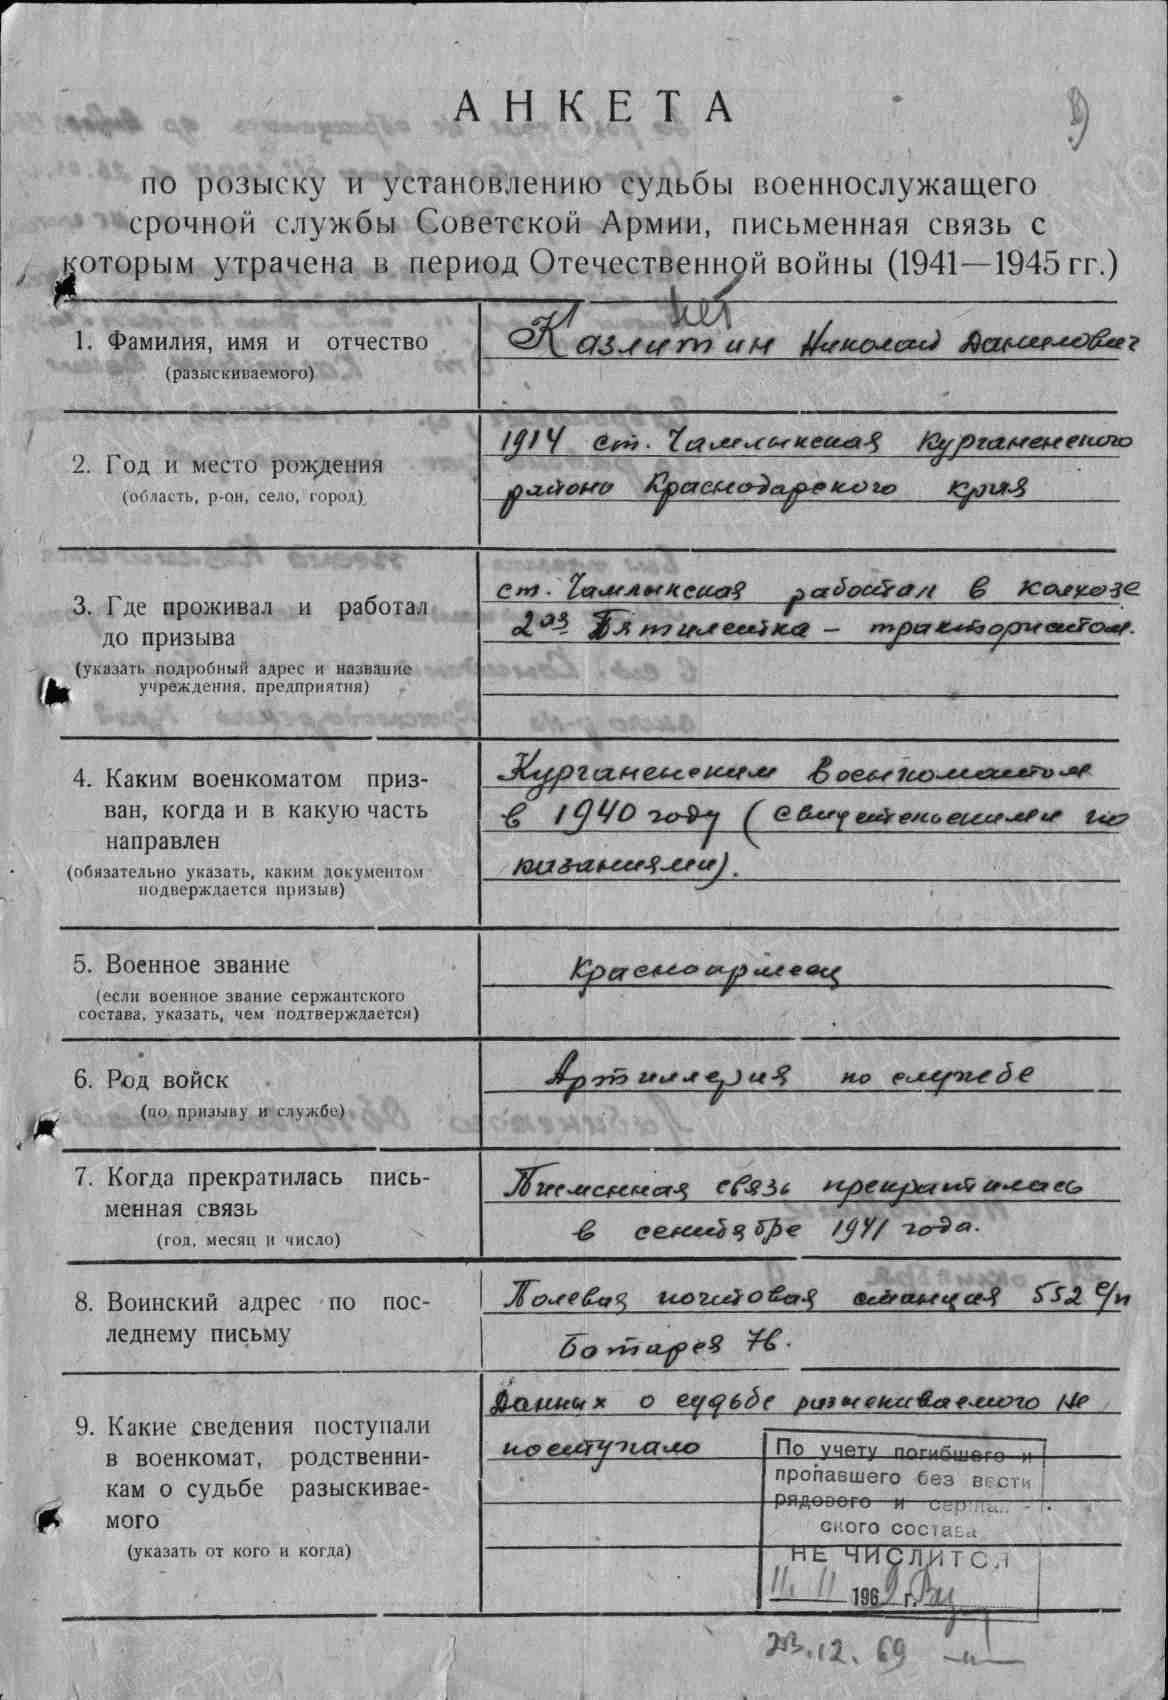 АНКЕТА
по розыску и установлению судьбы военнослужащего
срочной службы Советской Армии, письменная связь с
которым утрачена в период Отечественной войны (1941—1945 гг.)
нет
1. Фамилия, имя и отчество
(разыскиваемого)
Казлитин Николай Данилович
2. Год и место рождения
(область, р-он, село, город)
1914 ст. Чамлыкская Курганенского
района Краснодарского края
3. Где проживал и работал
до призыва
(указать подробный адрес и название
учреждения, предприятия)
ст. Чамлыкская работал в колхозе
2ая Пятилетка — трактористом.
4. Каким военкоматом приз-
ван, когда и в какую часть
направлен
(обязательно указать, каким документом
подверждается призыв)
Курганенским военкоматом
в 1940 году (свидетельскими по
казаниями).
5. Военное звание
(если военное звание сержантского
состава, указать, чем подтверждается)
Красноармеец
6. Род войск
(по призыву и службе)
Артиллерия по службе
7. Когда прекратилась пись-
менная связь
(год, месяц и число)
Писменная связь прекратилась
в сентябре 1941 года.
8. Воинский адрес по пос-
леднему письму
Полевая почтовая станция 552 с/п
Батарея 76.
9. Какие сведения поступали
в военкомат, родственни-
кам о судьбе разыскивае-
мого
(указать от кого и когда)
Данных о судьбе разыскиваемого не
поступало
По учету погибшего и
пропавшего без вести
рядового и сержант-
ского состава
НЕ ЧИСЛИТСЯ
11. 11 1969 г.
23.12.69